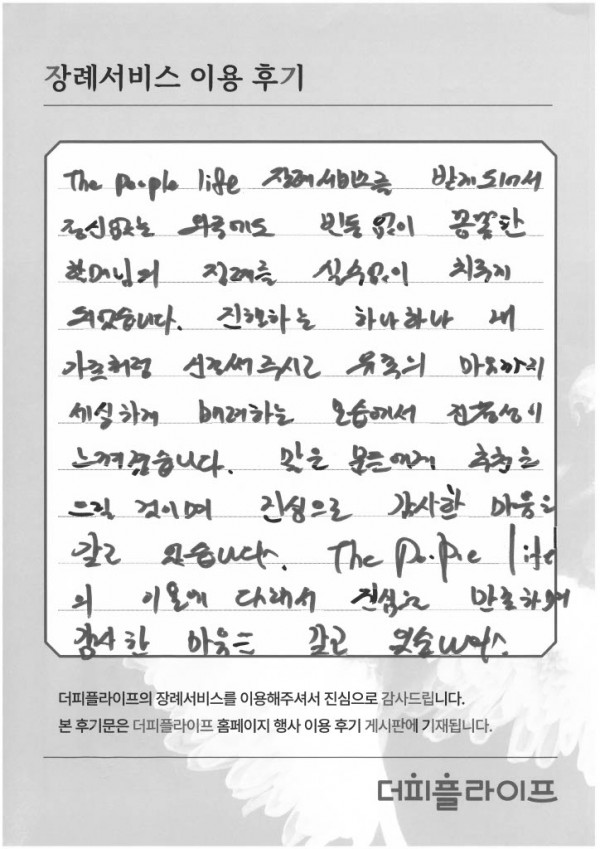 장례서비스 이용 후기
The people life 장례서비스를 받게 되어서
정신없는 와중에도 빈틈 없이 꼼꼼한
할머님의 장례를 실수없이 치루게
되었습니다. 진행하는 하나하나 내
가족처럼 신경써주시고 유족의 마음까지
세심하게 배려하는 모습에서 진정성이
느껴졌습니다. 많은 분들에게 추천을
드릴 것이며 진심으로 감사한 마음을
갖고 있습니다. The People life
의 이용에 대해서 진심으로 만족하며
감사한 마음을 갖고 있습니다.
더피플라이프의 장례서비스를 이용해주셔서 진심으로 감사드립니다.
본 후기문은 더피플라이프 홈페이지 행사 이용 후기 게시판에 기재됩니다.
더피플라이프